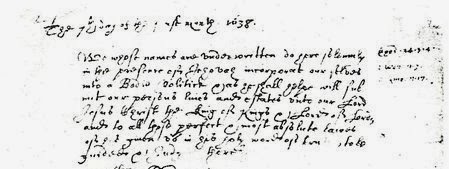 The day of the month 1638.
We whose names are underwritten do here solemnly
in the presence of Jehovah incorporate our selves
into a Bodie Politick & as he shall helpe will sub
mit our persons lives and estates unto our Lord
Jesus Christ the King of Kings & Lord of Lords
and to all those perfect & most absolute lawes
of his given us in his holy word of truth to be
guided &
Exod: 24-3-4